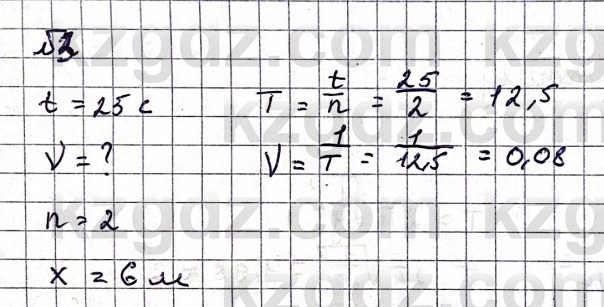 №3
t = 25 с T = t/n = 25/2 = 12,5
V = ? V = 1/T = 1/12,5 = 0,08
n = 2
x = 6 м
kzgdz.com